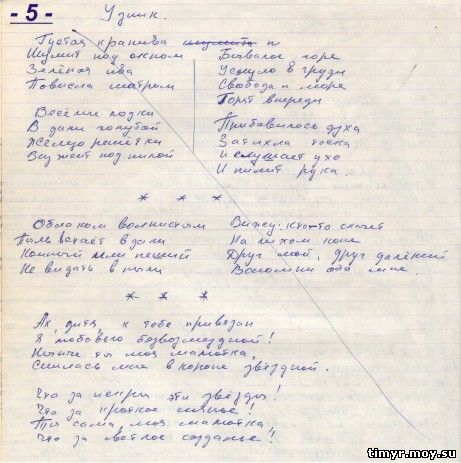 - 5 -
Узник.
Густая крапива
Шумит под окном
Зелёная ива
Повисла шатром
Весёлые лодки
В дали голубой
Железо решётки
Визжит под пилой
Бывалое горе
Уснуло в груди
Свобода и море
Горят впереди
Прибавилось духа
Затихла тоска
И слушает ухо
И пилит рука.
* * *
Облаком волнистым
Пыль встаёт вдали
Конный или пеший
Не видать в пыли
Вижу: кто-то скачет
На лихом коне
Друг мой, друг далёкий
Вспомни обо мне.
* * *
Ах, дитя, к тебе привязан
Я любовью безвозмездной!
Нынче ты моя малютка,
Снилась мне в короне звёздной.
Что за искры эти звёзды!
Что за кроткое сиянье!
Ты сама, моя малютка,
Что за светлое созданье!
timyr.moy.su